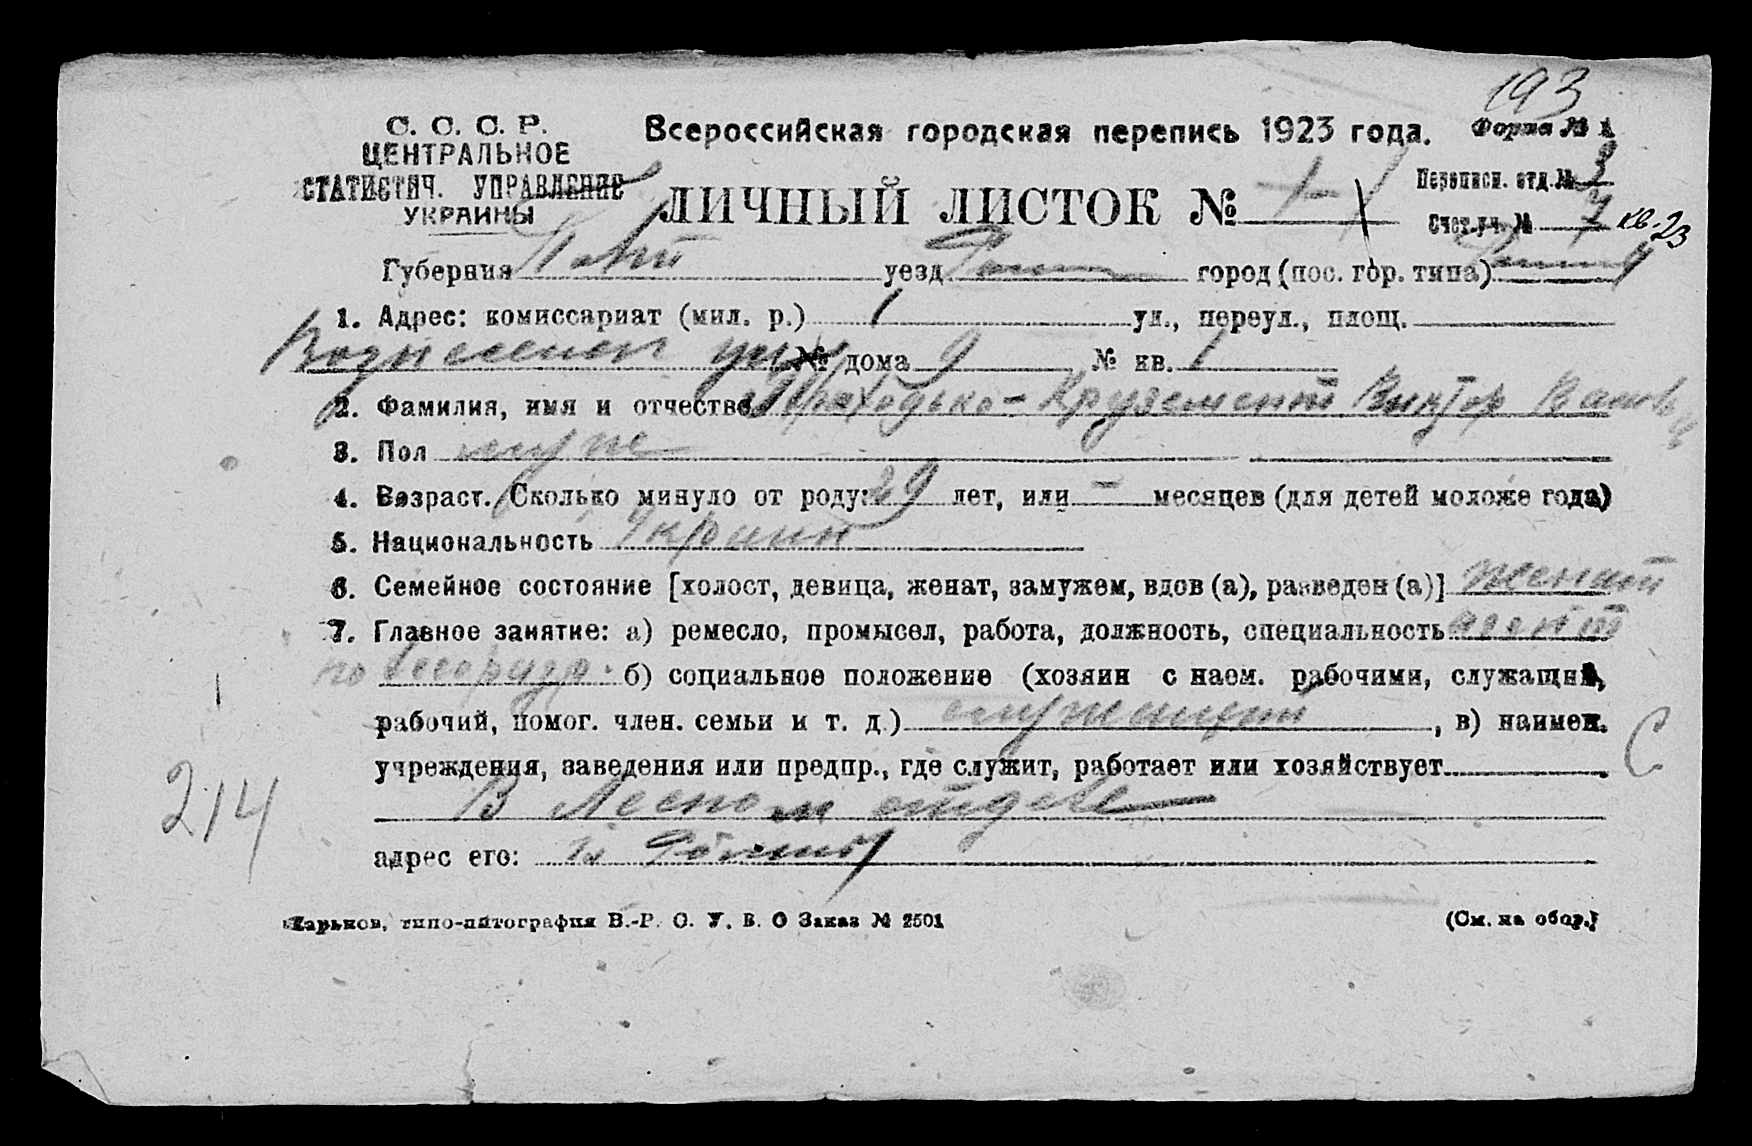 193
С. С. С. Р. Всероссийская городская перепись 1923 года. Форма № 1
ЦЕНТРАЛЬНОЕ
СТАТИСТИЧ. УПРАВЛЕНИЕ Переписн. отд. № 3
УКРАИНЫ ЛИЧНЫЙ ЛИСТОК № Счет. уч. № 7 кв. 23
Губерния Полт уезд Ромн город (пос. гор. типа)
1. Адрес: комиссариат (мил. р.) 1 ул., переул., площ.
Вознесенск ул № дома 9 № кв. 1
2. Фамилия, имя и отчество Виктор
3. Пол муж
4. Возраст. Сколько минуло от роду: 29 лет, или – месяцев (для детей моложе года)
5. Национальность Украин
6. Семейное состояние [холост, девица, женат, замужем, вдов (а), разведен (а)] женат
7. Главное занятие: а) ремесло, промысел, работа, должность, специальность агент
по б) социальное положение (хозяин с наем. рабочими, служащий,
рабочий, помог. член. семьи и т. д.) служащий, в) наимен. С
учреждения, заведения или предпр., где служит, работает или хозяйствует
В Лесном отделе
214
адрес его: г.
Харьков, типо-литография В.-Р. О. У. В. О Заказ № 2501 (См. на обор.)